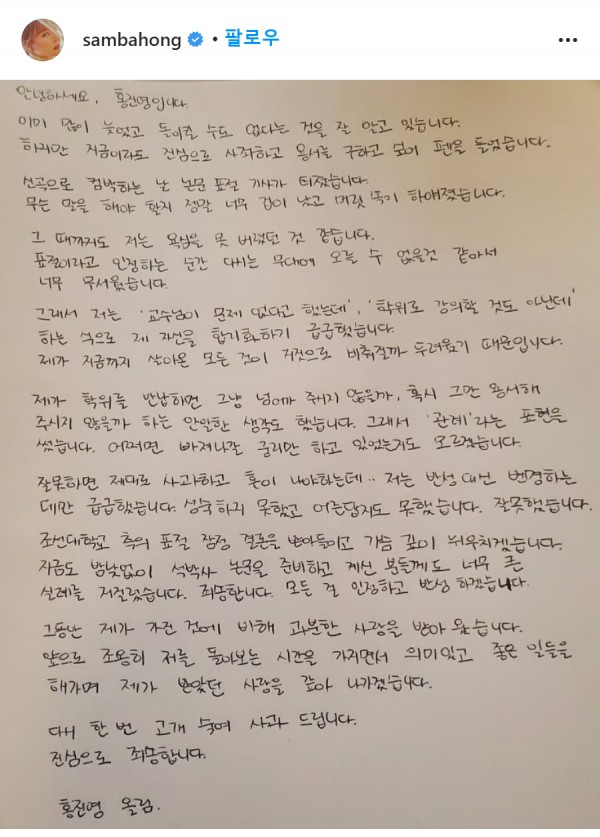 sambahong • 팔로우
안녕하세요, 홍진영입니다.
이미 많이 늦었고 돌이킬 수도 없다는 것을 잘 알고 있습니다.
하지만 지금이라도 진심으로 사죄하고 용서를 구하고 싶어 펜을 들었습니다.
신곡으로 컴백하는 날 논문 표절 기사가 터졌습니다.
무슨 말을 해야 할지 정말 너무 겁이 났고 머릿 속이 하얘졌습니다.
그 때까지도 저는 욕심을 못 버렸던 것 같습니다.
표절이라고 인정하는 순간 다시는 무대에 오를 수 없을것 같아서
너무 무서웠습니다.
그래서 저는 '교수님이 문제 없다고 했는데', '학위로 강의할 것도 아닌데'
하는 식으로 제 자신을 합리화하기 급급했습니다.
제가 지금까지 살아온 모든 것이 거짓으로 비춰질까 두려웠기 때문입니다.
제가 학위를 반납하면 그냥 넘어가 주시지 않을까, 혹시 그만 용서해
주시지 않을까 하는 안일한 생각도 했습니다. 그래서 '관례'라는 표현을
썼습니다. 어쩌면 빠져나갈 궁리만 하고 있었는지도 모르겠습니다.
잘못하면 제대로 사과하고 혼이 나야하는데.. 저는 반성 대신 변명하는
데만 급급했습니다. 성숙하지 못했고 어른답지도 못했습니다. 잘못했습니다.
조선대학교 측의 표절 잠정 결론을 받아들이고 가슴 깊이 뉘우치겠습니다.
지금도 밤낮없이 석박사 논문을 준비하고 계신 분들께도 너무 큰
실례를 저질렀습니다. 죄송합니다. 모든 걸 인정하고 반성 하겠습니다.
그동안 제가 가진 것에 비해 과분한 사랑을 받아 왔습니다.
앞으로 조용히 저를 돌아보는 시간을 가지면서 의미있고 좋은 일들을
해가며 제가 받았던 사랑을 갚아 나가겠습니다.
다시 한 번 고개 숙여 사과 드립니다.
진심으로 죄송합니다.
홍진영 올림.